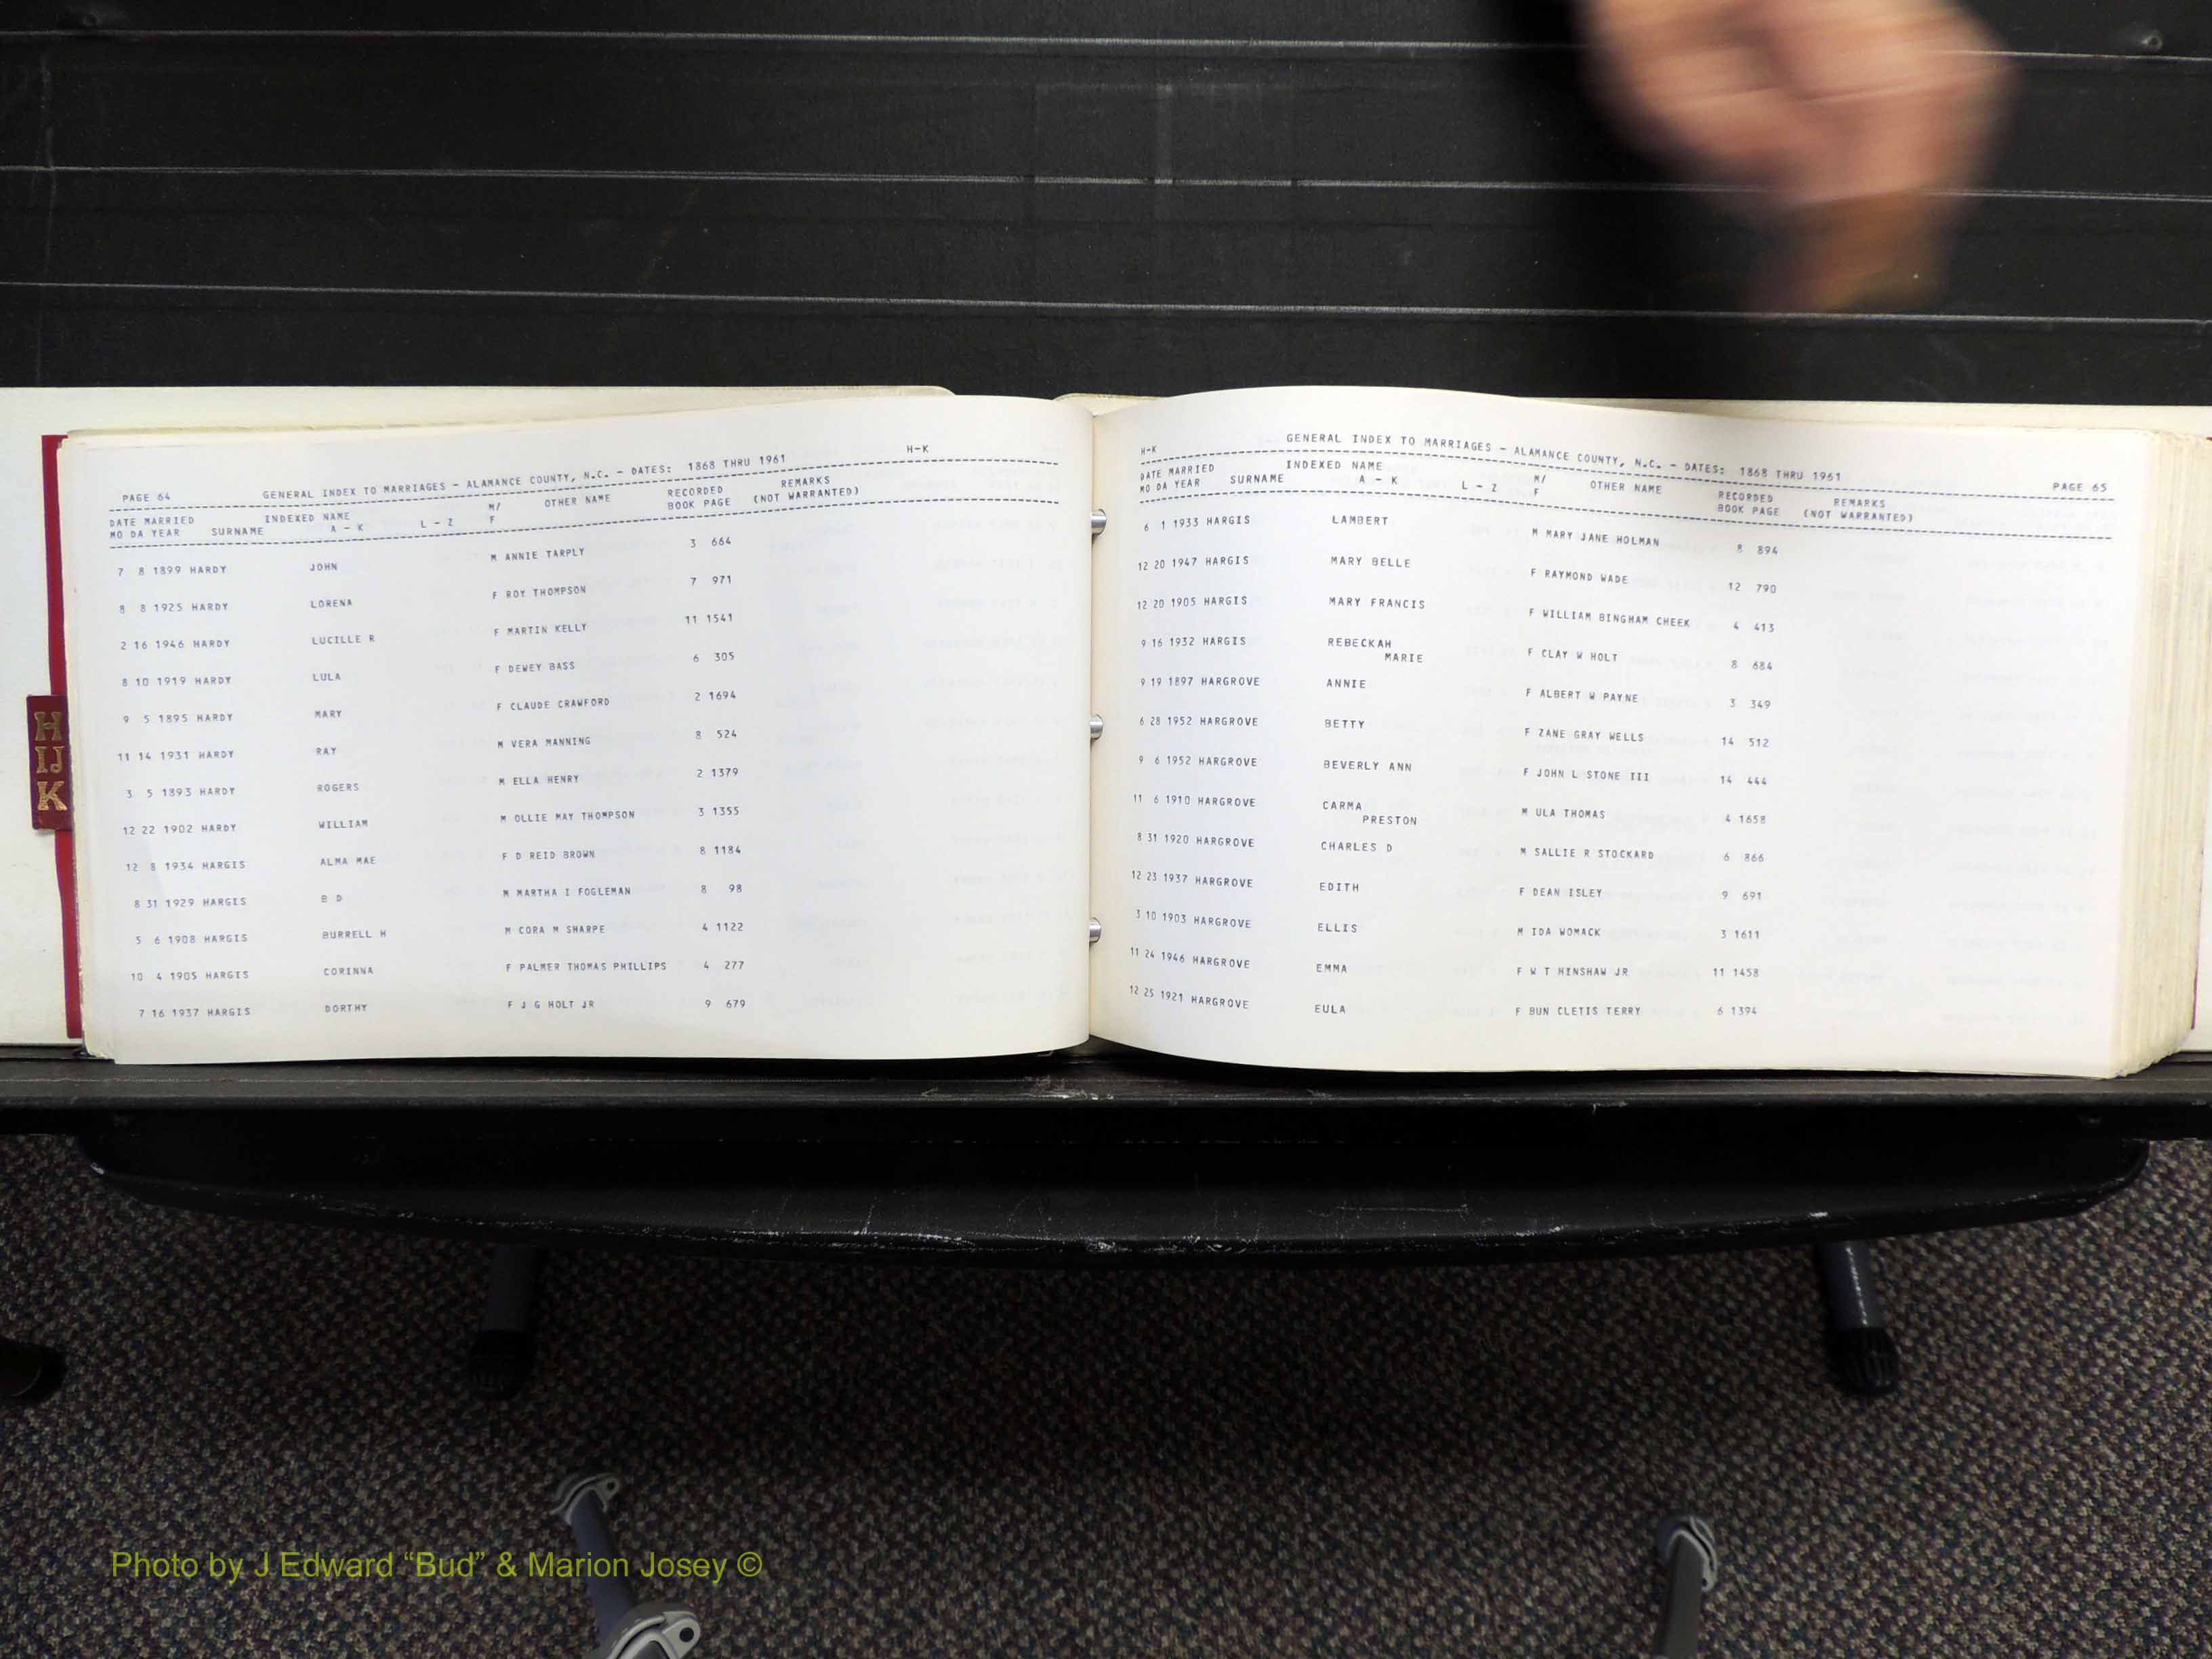 PAGE 64 GENERAL INDEX TO MARRIAGES - ALAMANCE COUNTY, N.C. - DATES: 1868 THRU 1961 H-K
DATE MARRIED INDEXED NAME M/ OTHER NAME RECORDED REMARKS
MO DA YEAR SURNAME A - K L - Z F BOOK PAGE (NOT WARRANTED)
7 8 1899 HARDY JOHN M ANNIE TARPLY 3 664
8 8 1925 HARDY LORENA F ROY THOMPSON 7 971
2 16 1946 HARDY LUCILLE R F MARTIN KELLY 11 1541
8 10 1919 HARDY LULA F DEWEY BASS 6 305
9 5 1895 HARDY MARY F CLAUDE CRAWFORD 2 1694
11 14 1931 HARDY RAY M VERA MANNING 8 524
3 5 1893 HARDY ROGERS M ELLA HENRY 2 1379
12 22 1902 HARDY WILLIAM M OLLIE MAY THOMPSON 3 1355
12 8 1934 HARGIS ALMA MAE F D REID BROWN 8 1184
8 31 1929 HARGIS B D M MARTHA I FOGLEMAN 8 98
5 6 1908 HARGIS BURRELL H M CORA M SHARPE 4 1122
10 4 1905 HARGIS CORINNA F PALMER THOMAS PHILLIPS 4 277
7 16 1937 HARGIS DORTHY F J G HOLT JR 9 679
H
IJ
K
H-K GENERAL INDEX TO MARRIAGES - ALAMANCE COUNTY, N.C. - DATES: 1868 THRU 1961 PAGE 65
DATE MARRIED INDEXED NAME M/ OTHER NAME RECORDED REMARKS
MO DA YEAR SURNAME A - K L - Z F BOOK PAGE (NOT WARRANTED)
6 1 1933 HARGIS LAMBERT M MARY JANE HOLMAN 8 894
12 20 1947 HARGIS MARY BELLE F RAYMOND WADE 12 790
12 20 1905 HARGIS MARY FRANCIS F WILLIAM BINGHAM CHEEK 4 413
9 16 1932 HARGIS REBECKAH F CLAY W HOLT 8 684
MARIE
9 19 1897 HARGROVE ANNIE F ALBERT W PAYNE 3 349
6 28 1952 HARGROVE BETTY F ZANE GRAY WELLS 14 512
9 6 1952 HARGROVE BEVERLY ANN F JOHN L STONE III 14 444
11 6 1910 HARGROVE CARMA M ULA THOMAS 4 1658
PRESTON
8 31 1920 HARGROVE CHARLES D M SALLIE R STOCKARD 6 866
12 23 1937 HARGROVE EDITH F DEAN ISLEY 9 691
3 10 1903 HARGROVE ELLIS M IDA WOMACK 3 1611
11 24 1946 HARGROVE EMMA F W T HINSHAW JR 11 1458
12 25 1921 HARGROVE EULA F BUN CLETIS TERRY 6 1394
Photo by J Edward “Bud” & Marion Josey ©